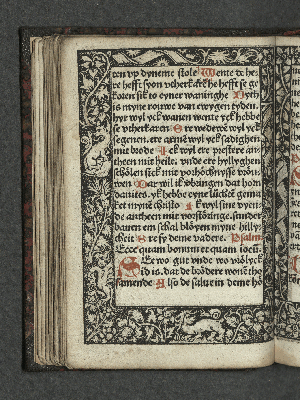 ten vp dyneme stole Wente de he
re hefft syon vtherkārē he hefft se ge
koren sik to eyner waninghe Dyth
is myne rouwe van ewygen tyden
hyr wyl yck wanen wente yck hebbe
se vtherkaren Ere wedewē wyl yck
segenen. ere armē wyl yck sadighen
mit brode Ick wyl ere prestere an
theen mit heile. vnde ere hyllyghen
schölen sick mit vorhöchnysse vröu
wen Dar wil ik vtbringen dat horn
dauites. yk hebbe eyne lüchtē gema
ket mynē christo Ik wyl sine vyen
de antheen mit vorstöringe. sunder
bauen em schal blöyen myne hilly
cheit Ere sy deme vadere. Psalm
Ecce quam bonum et quam iocū.
Set wo gut vnde wo vrölyck
id is. dat de brödere wonē tho
samende Also de salue in deme hö